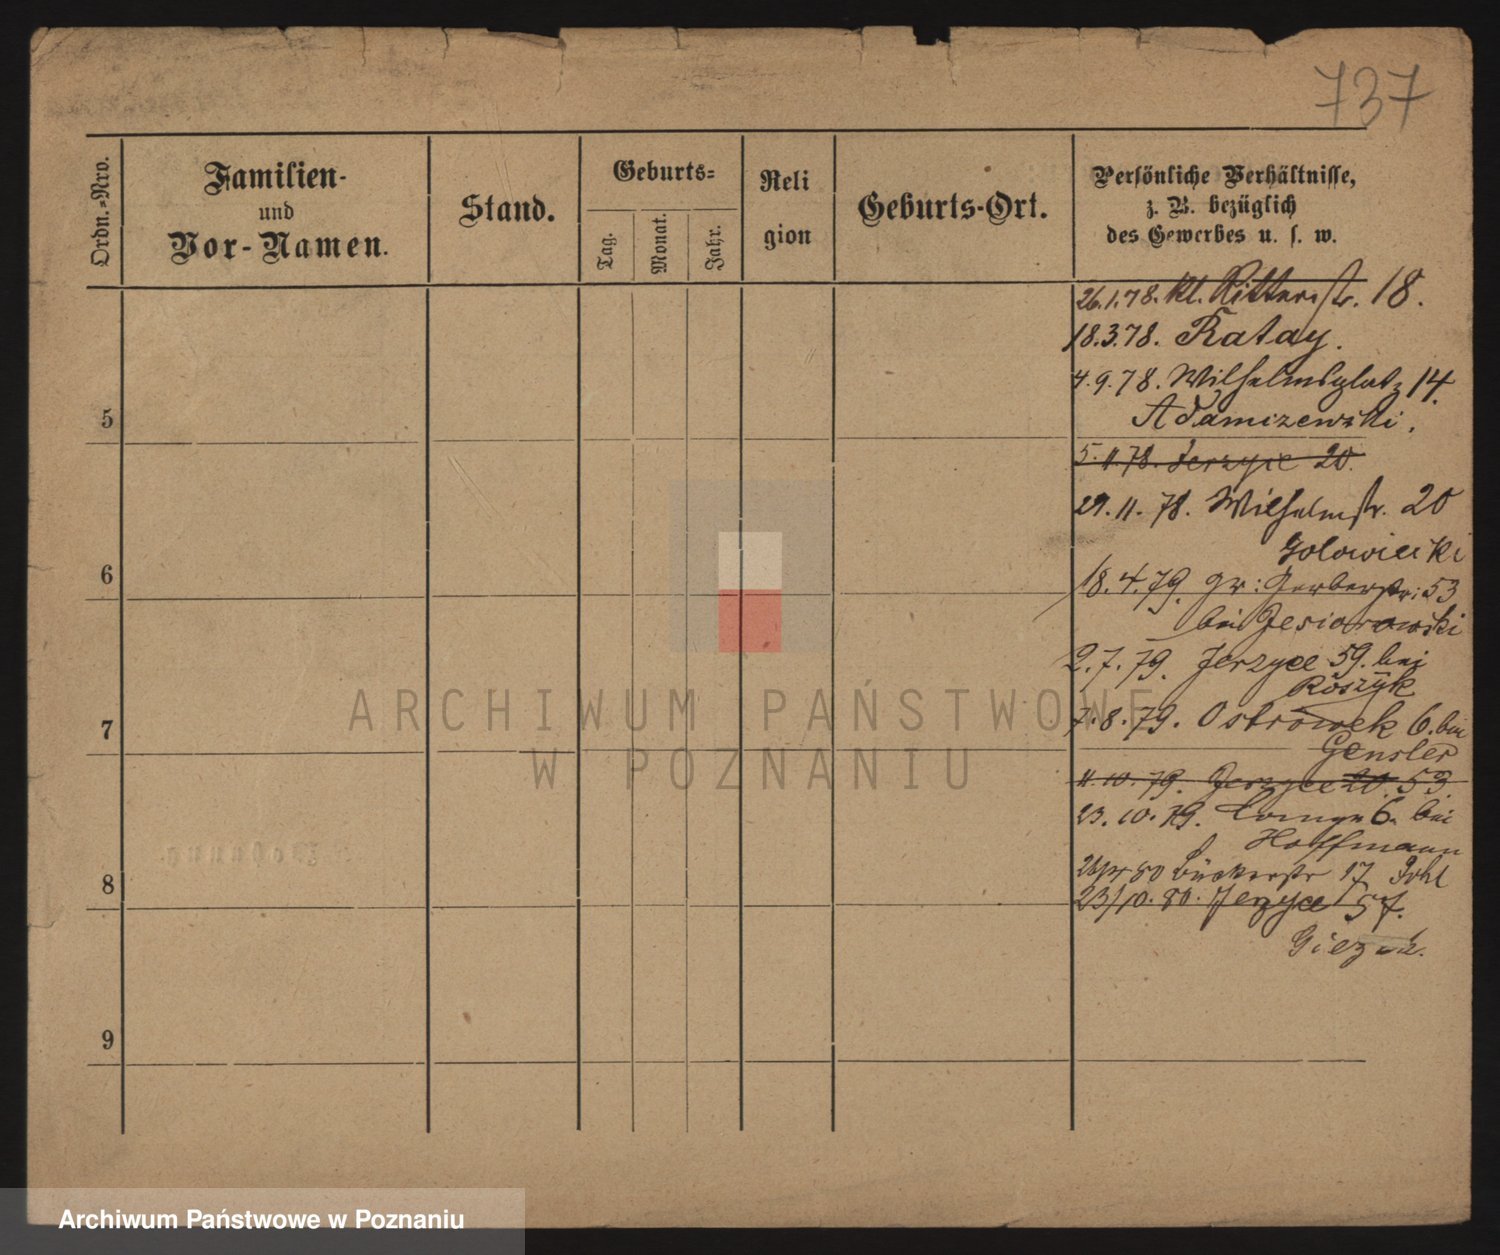 737
Ordn.-Nro.
Familien-
und
Vor-Namen.
Stand.
Geburts-
Tag.
Monat.
Jahr.
Reli
gion
Geburts-Ort.
Persönliche Verhältnisse,
z. B. bezüglich
des Gewerbes u. s. w.
26.1.78. kl. Ritterstr. 18.
18.3.78. Ratay.
4.9.78. Wilhelmsplatz 14.
Adamczewski.
5
5.11.78. Jerzyce 20.
29.11.78. Wilhelmstr. 20
6
18.4.79. gr: Gerberstr: 53
bei Jesiorowski
2.7.79. Jerzyce 59. bei
Roszyk
7
7.8.79. Ostrówek 6. bei
Gensler
11.10.79. Jerzyce 20. 53.
23.10.79. 6. bei
Hoffmann
17
8
23/10.80. Jerzyce 57.
9
ARCHIWUM PAŃSTWOWE
W POZNANIU
Archiwum Państwowe w Poznaniu